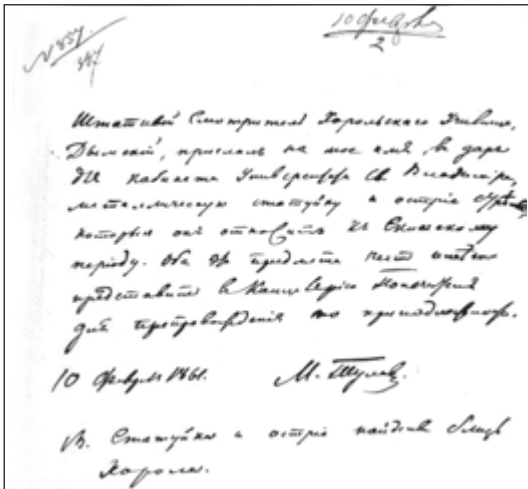 N 857
10 февр.
2
Штатный Смотритель Хорольского Училища,
Дымской, прислал на мое имя, в дар
для кабинета Университета Св. Владимира,
металлическую статуйку и острие
которые он относит к Скифскому
периоду. Оба эти предмета честь имею
представить в Канцелярию Попечителя
для препровождения по принадлежности.
10 Февраля 1861. М. Тулов.
Статуйка и острие найдены близь
Хорола.